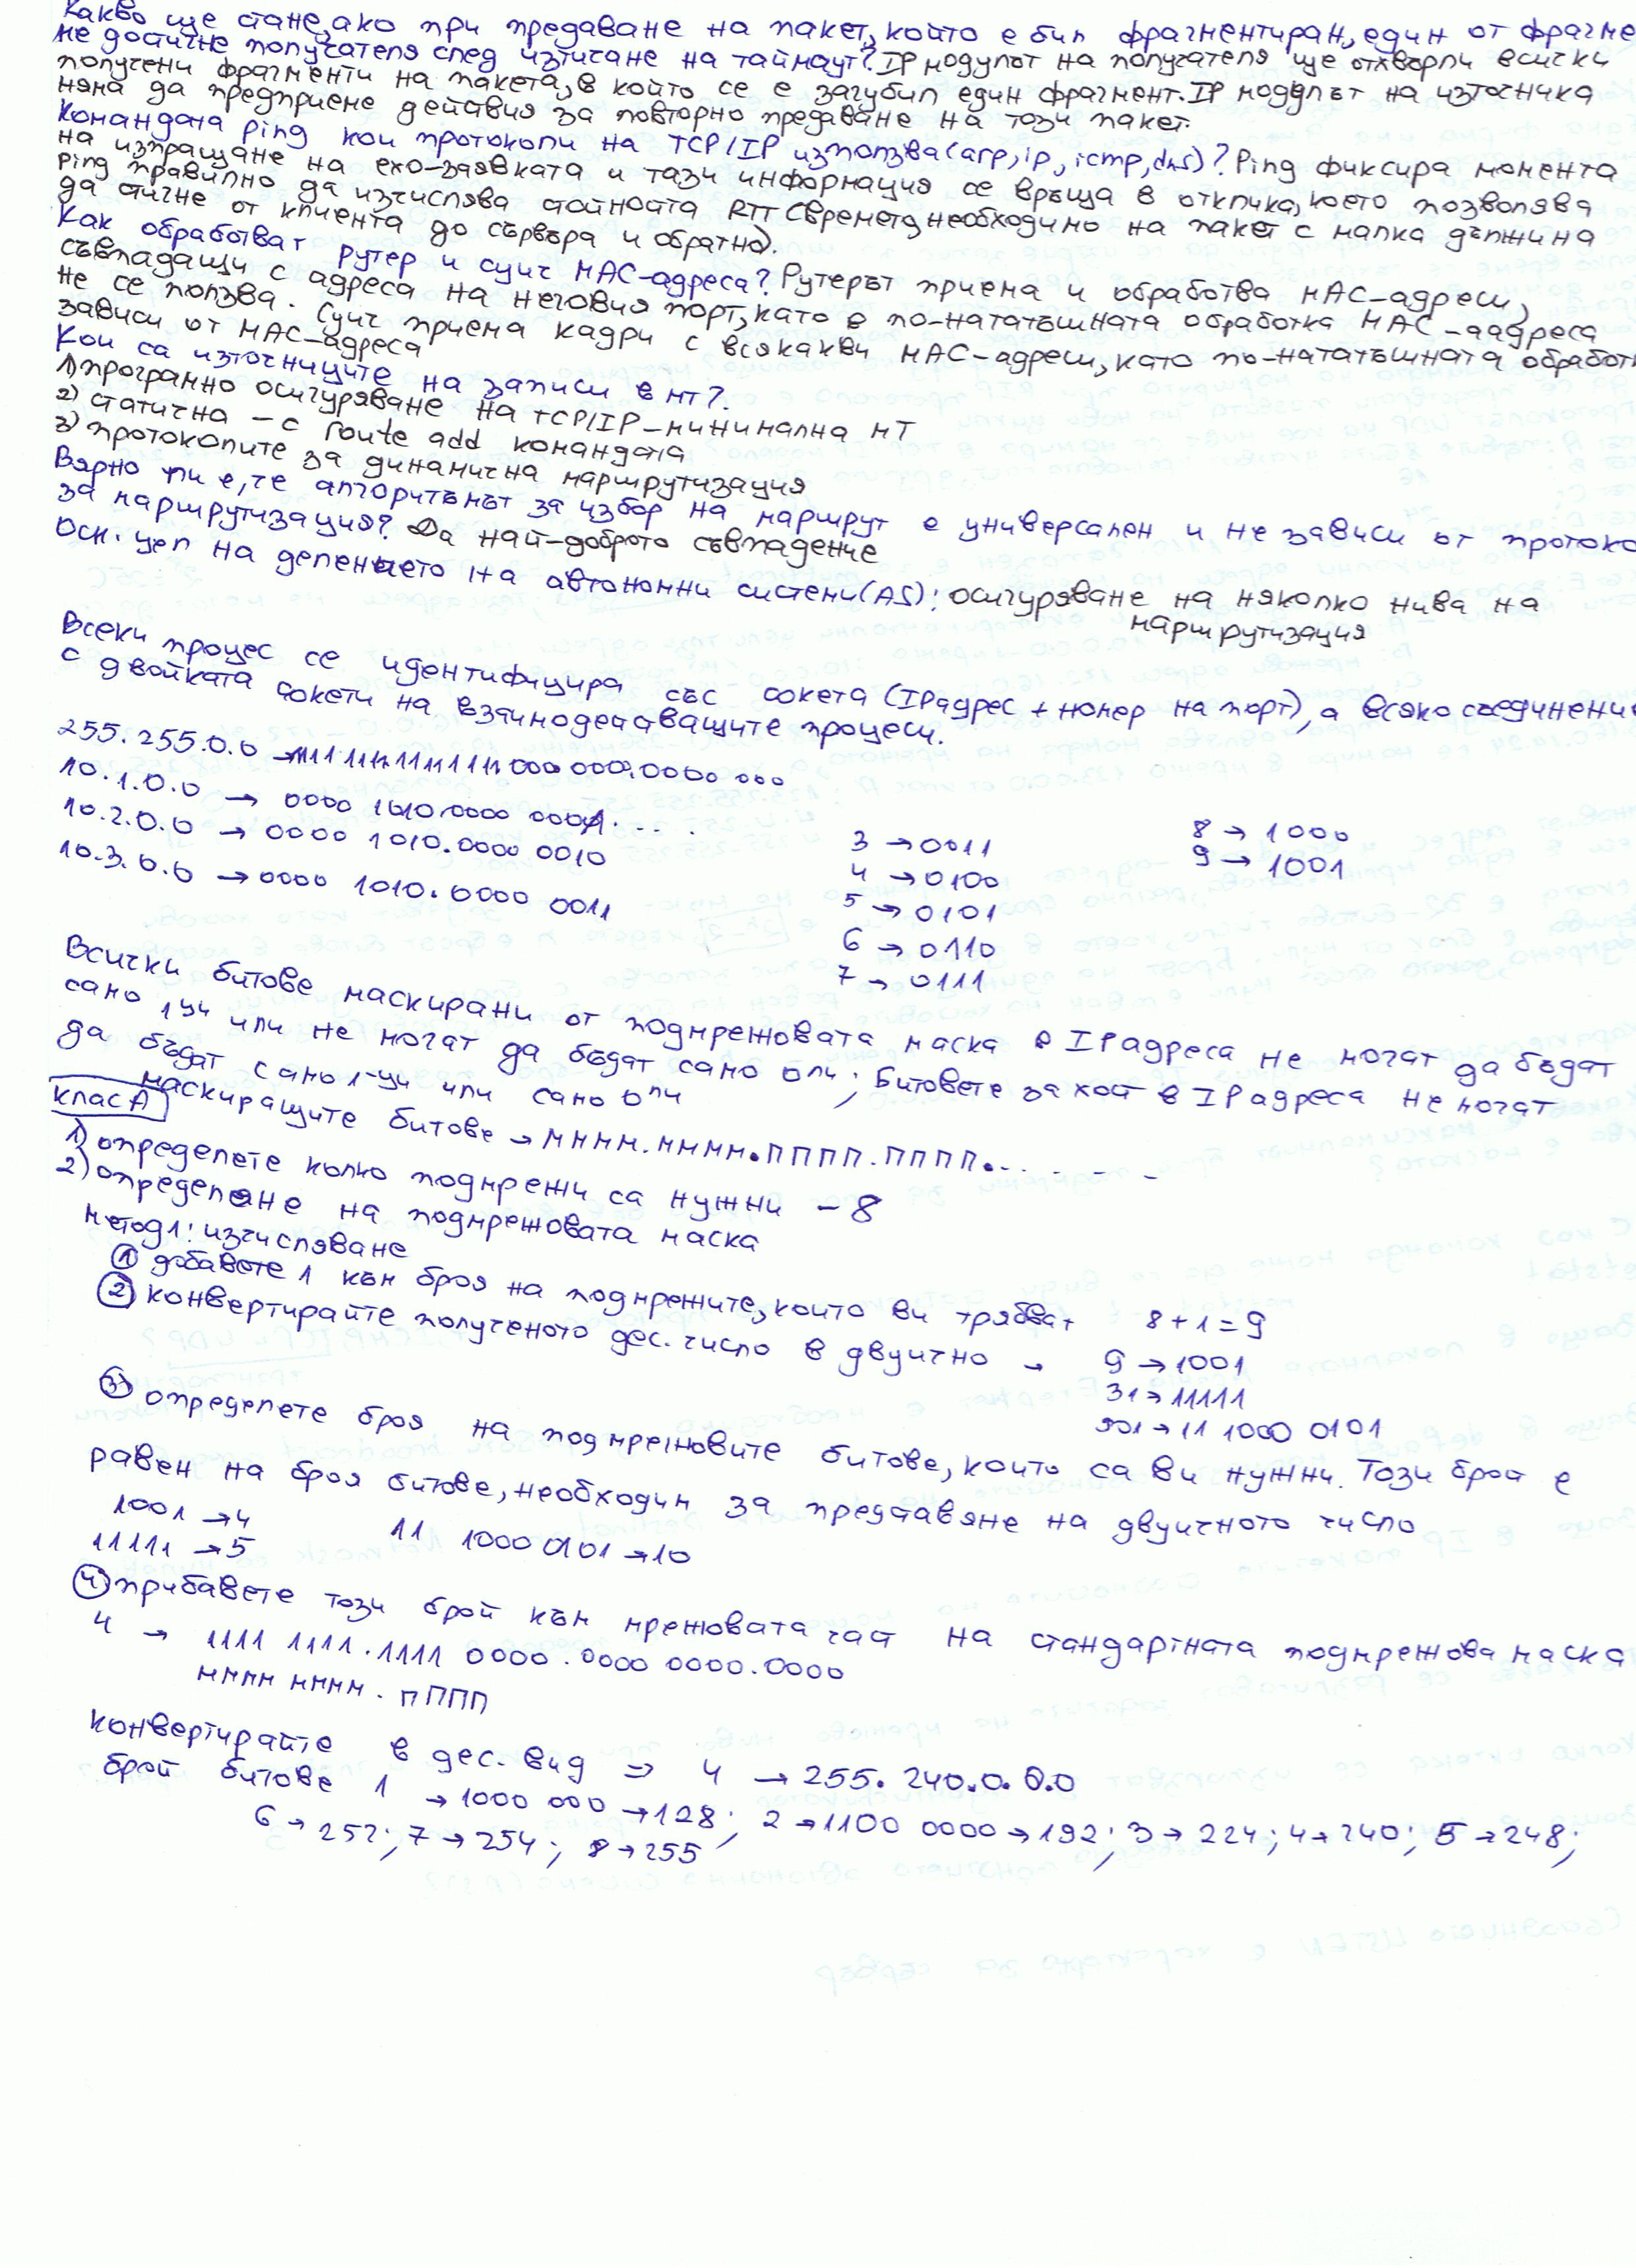 Какво ще стане, ако при предаване на пакет, който е бил фрагментиран, един от фрагме
не достигне получателя след изтичане на таймаут? IP модулът на получателя ще отхвърли всички
получени фрагменти на пакета, в който се е загубил един фрагмент. IP модулът на източника
няма да предприеме действия за повторно предаване на този пакет.
Командата ping кои протоколи на TCP/IP използва (arp, ip, icmp, dns)? Ping фиксира момента
на изпращане на ехо-заявката и тази информация се връща в отклика, което позволява
Ping правилно да изчислява стойността RTT (времето, необходимо на пакет с малка дължина
да стигне от клиента до сървъра и обратно).
Как обработват рутер и суич MAC-адреса? Рутерът приема и обработва MAC-адреси,
съвпадащи с адреса на неговия порт, като в по-нататъшната обработка MAC-аадреса
не се ползва. Суич приема кадри с всякакви MAC-адреси, като по-нататъшната обработ
зависи от MAC-адреса
Кои са източниците на записи в МТ?
1) програмно осигуряване на TCP/IP-минимална МТ
2) статична - с route add командата
3) протоколите за динамична маршрутизация
Вярно ли е, че алгоритъмът за избор на маршрут е универсален и не зависи от протоко
за маршрутизация? Да най-доброто съвпадение
Осн. цел на делението на автономни системи (AS): осигуряване на няколко нива на
маршрутизация
Всеки процес се идентифицира със сокета (IP адрес + номер на порт), а всяко съединени
с двойката сокети на взаимодействащите процеси.
255.255.0.0 → 1111 1111.1111 1111.000 000.0000 000
10.1.0.0 → 0000 1010.0000 0001. . . .
10.2.0.0 → 0000 1010.0000 0010
10.3.0.0 → 0000 1010.0000 0011
3 → 0011
4 → 0100
5 → 0101
6 → 0110
7 → 0111
8 → 1000
9 → 1001
Всички битове маскирани от подмрежовата маска в IP адреса не могат да бъдат
само 1-ци или не могат да бъдат само 0ли; Битовете за хост в IP адреса не могат
да бъдат само 1-ци или само 0ли
клас А
маскиращите битове → мммм.мммм.пппп.пппп. . . - - -
1) определете колко подмрежи са нужни - 8
2) определяне на подмрежовата маска
метод 1: изчисляване
① добавете 1 към броя на подмрежите, които ви трябват 8+1=9
② конвертирайте полученото дес. число в двуично → 9 → 1001
31 → 11111
901 → 11 1000 0101
③ определете броя на подмрежовите битове, които са ви нужни. Този брой е
равен на броя битове, необходим за представяне на двуичното число
1001 → 4
11111 → 5
11 1000 0101 → 10
④ прибавете този брой към мрежовата част на стандартната подмрежова маска
4 → 1111 1111.1111 0000.0000 0000.0000
мммм мммм.пппп
Конвертирайте в дес. вид => 4 → 255.240.0.0.0
брой битове 1 → 1000 000 → 128; 2 → 1100 0000 → 192; 3 → 224; 4 → 240; 5 → 248;
6 → 252; 7 → 254; 8 → 255